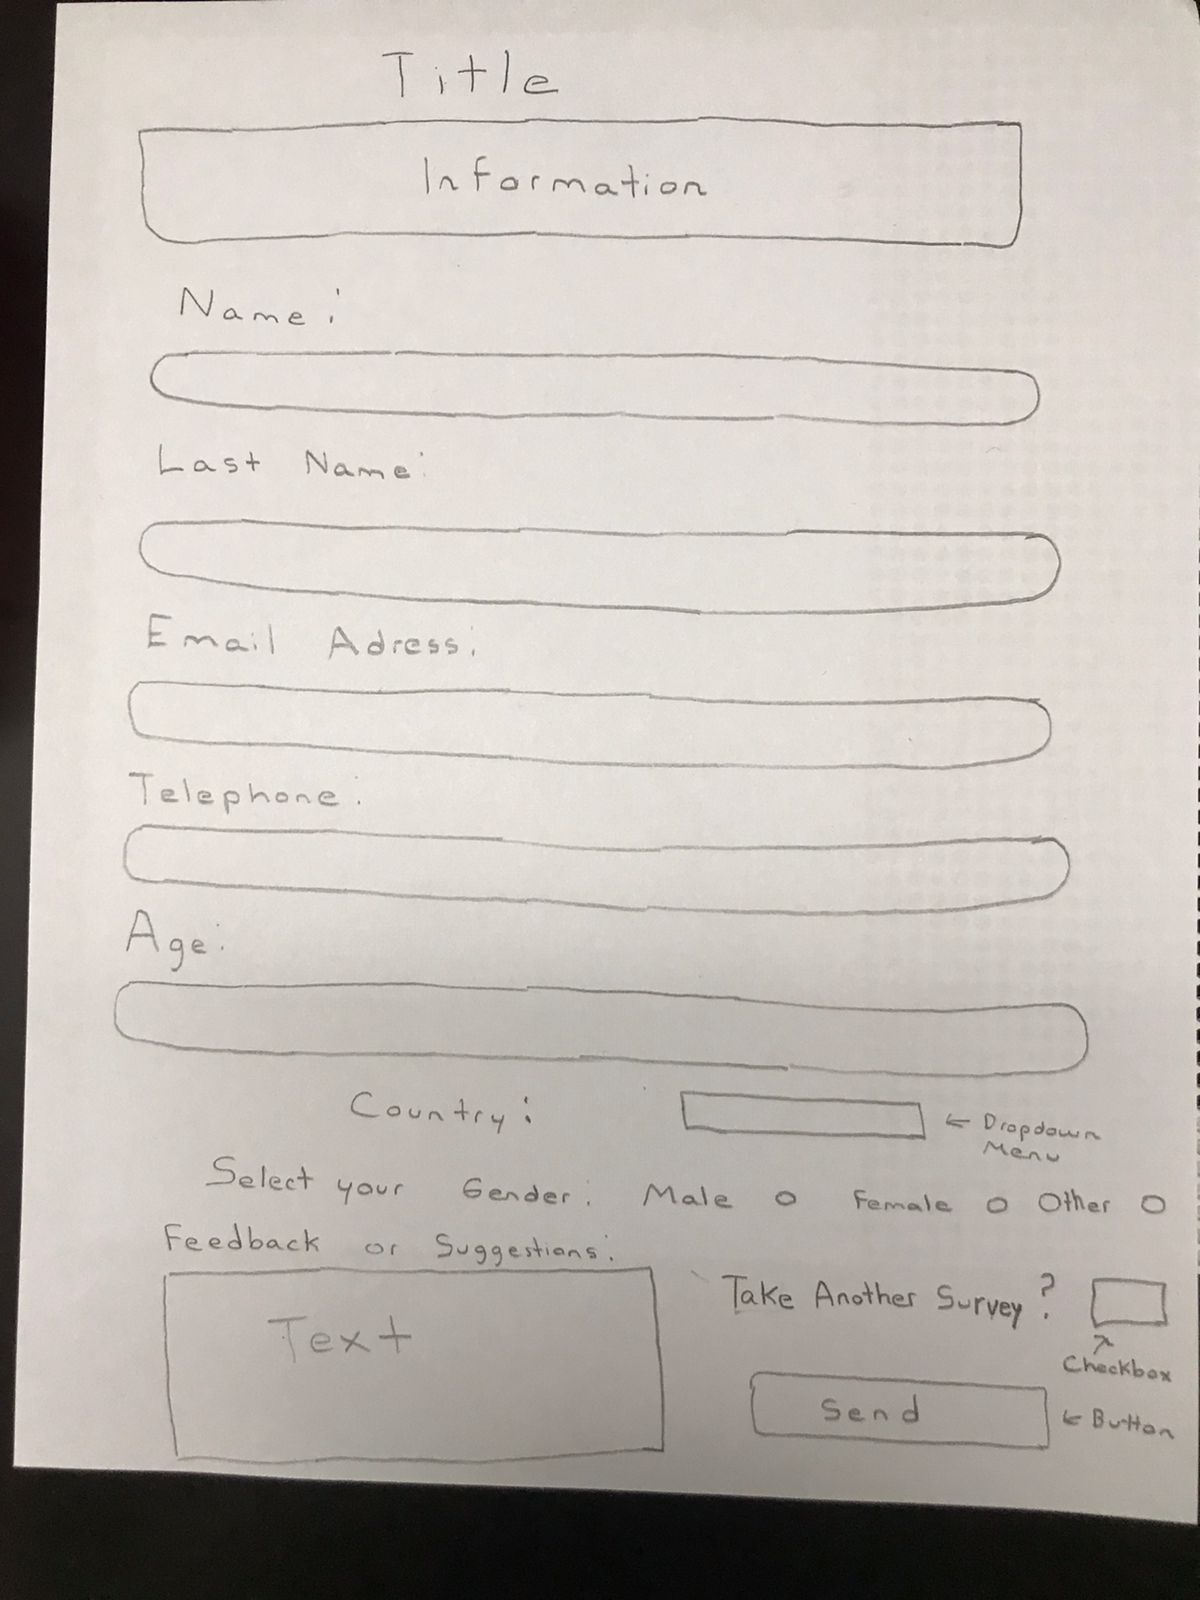 Title
Information
Name:
Last Name:
Email Adress:
Telephone:
Age:
Country: ← Dropdown
Menu
Select your Gender: Male o Female o Other o
Feedback or Suggestions:
Take Another Survey?
Text
Checkbox
Send ← Button